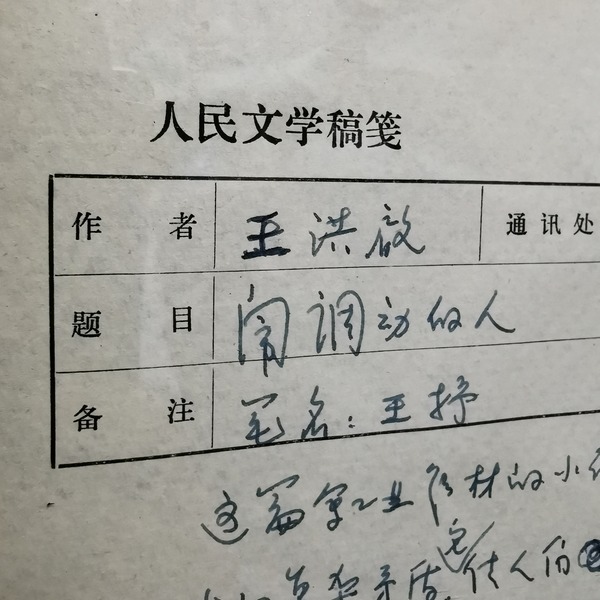 人民文学稿笺
作者 王洪啟 通讯处
题目 闹调动的人
备注 笔名：王抒
这篇写工业 材的小
矛盾